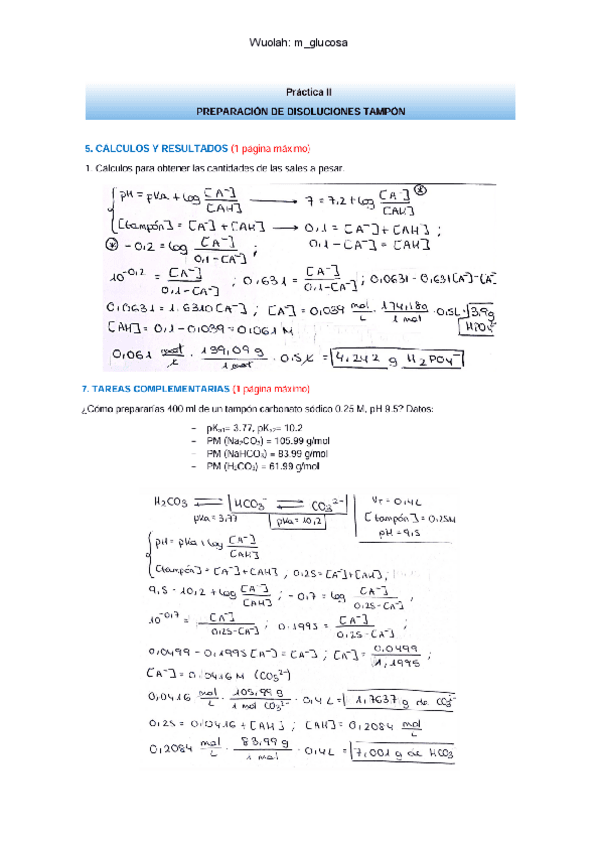 Wuolah: m_glucosa
Práctica II
PREPARACIÓN DE DISOLUCIONES TAMPÓN
5. CALCULOS Y RESULTADOS (1 pagina máximo)
1. Cálculos para obtener las cantidades de las sales a pesar.
pH = pKa + log [A⁻]/[AH] → 7 = 7,2 + log [A⁻]/[AH] *
[tampón] = [A⁻] + [AH] → 0,1 = [A⁻] + [AH] ;
* -0,2 = log [A⁻]/0,1-[A⁻] ; 0,1 - [A⁻] = [AH]
10^-0,2 = [A⁻]/0,1-[A⁻] ; 0,631 = [A⁻]/0,1-[A⁻] ; 0,0631 - 0,631[A⁻] = [A⁻
0,0631 = 1,6310[A⁻] ; [A⁻] = 0,039 mol/L · 174,18g/1 mol · 0,5L = 3,9g
[AH] = 0,1 - 0,039 = 0,061 M HPO₄⁻
0,061 mol/L · 139,09 g/1 mol · 0,5L = 4,242 g H₂PO₄⁻
7. TAREAS COMPLEMENTARIAS (1 página máximo)
¿Cómo prepararías 400 ml de un tampón carbonato sódico 0.25 M, pH 9.5? Datos:
– pKa1= 3.77, pKa2= 10.2
– PM (Na₂CO₃) = 105.99 g/mol
– PM (NaHCO₃) = 83.99 g/mol
– PM (H₂CO₃) = 61.99 g/mol
H₂CO₃ ⇌ HCO₃⁻ ⇌ CO₃²⁻ VT = 0,4L
pKa = 3,77 pKa = 10,2 [tampón] = 0,25M
pH = 9,5
pH = pKa + log [A⁻]/[AH]
[tampón] = [A⁻] + [AH] ; 0,25 = [A⁻] + [AH] ;
9,5 = 10,2 + log [A⁻]/[AH] ; -0,7 = log [A⁻]/0,25-[A⁻] ;
10^-0,7 = [A⁻]/0,25-[A⁻] ; 0,1995 = [A⁻]/0,25-[A⁻] ;
0,0499 - 0,1995[A⁻] = [A⁻] ; [A⁻] = 0,0499/1,1995 ;
[A⁻] = 0,0416 M (CO₃²⁻)
0,0416 mol/L · 105,99 g/1 mol CO₃²⁻ · 0,4L = 1,7637 g de CO₃²⁻
0,25 = 0,0416 + [AH] ; [AH] = 0,2084 mol/L
0,2084 mol/L · 83,99 g/1 mol · 0,4L = 7,001 g de HCO₃